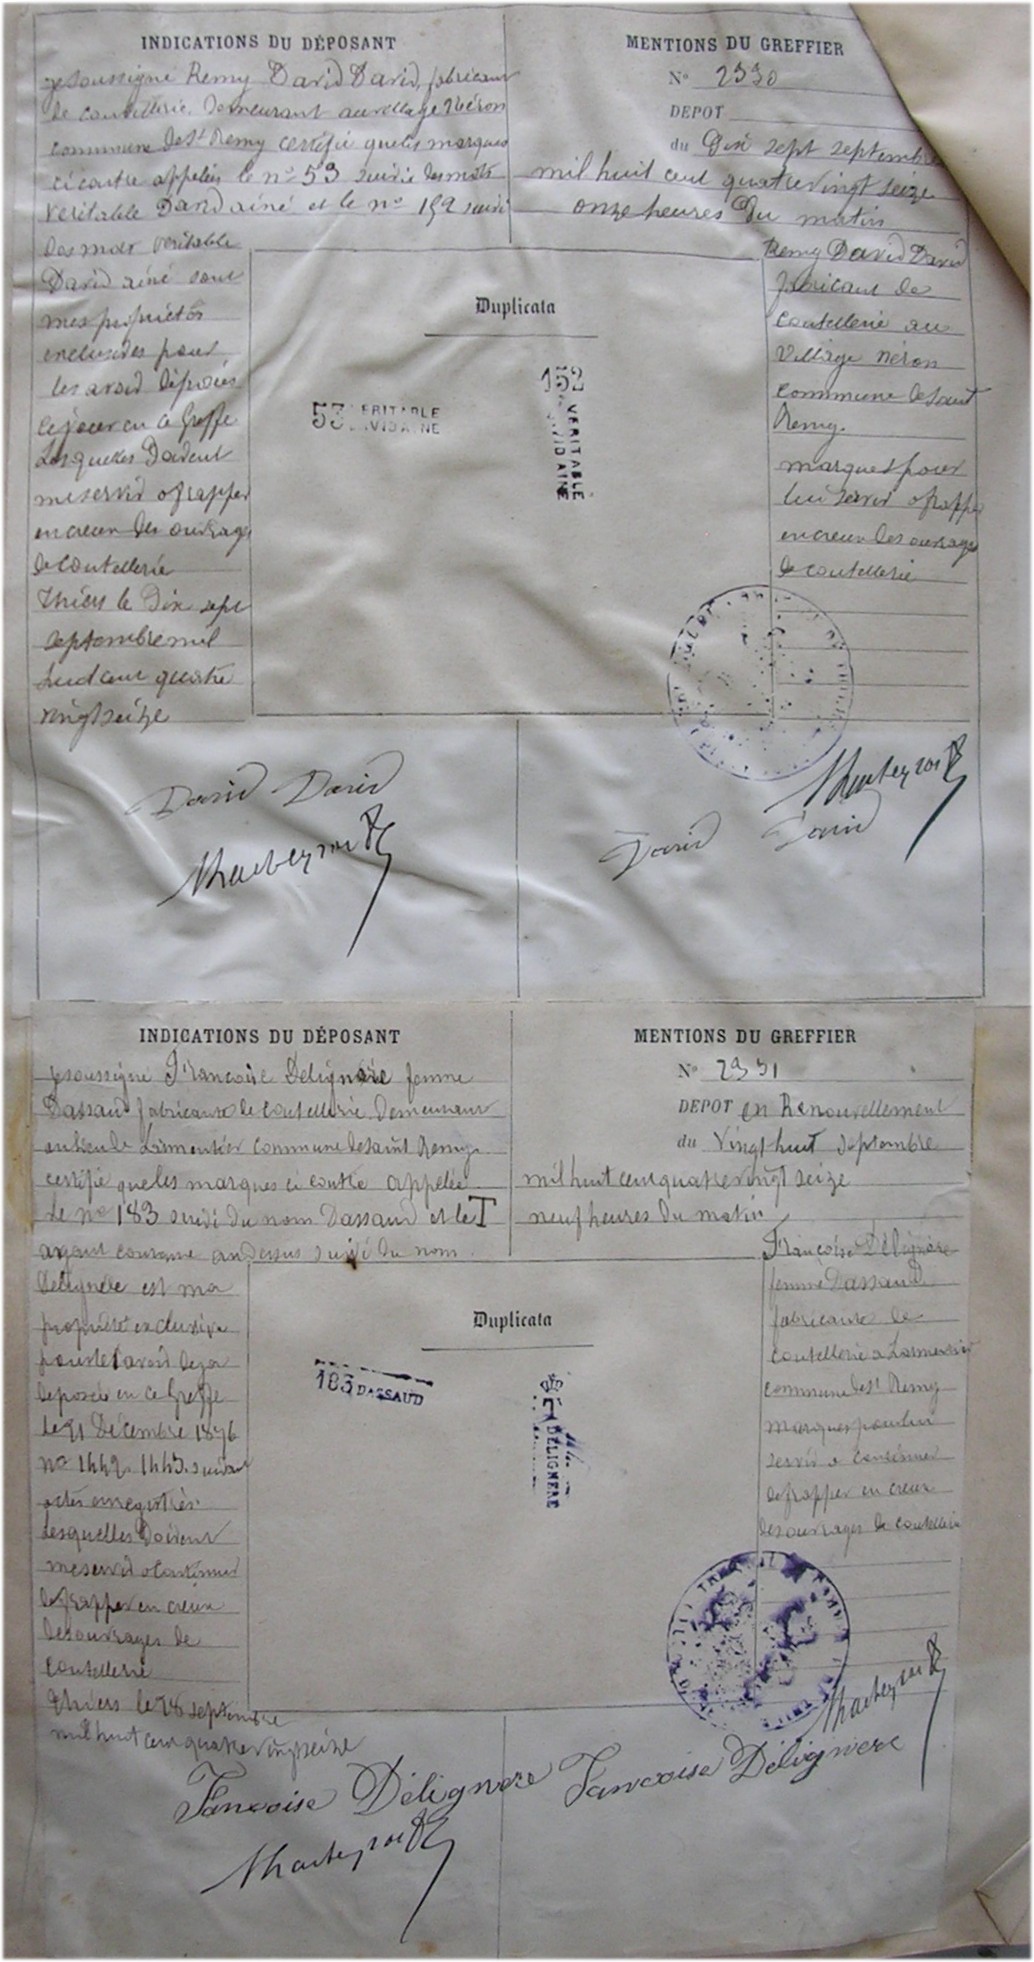 INDICATIONS DU DÉPOSANT
Je soussigné Remy David David, fabricant
de coutellerie. Demeurant au village Néron
commune de St Remy certifie que les marques
ci contre appelées le no 53 suivie des mots
veritable David ainé et le no 152 suivi
des mots veritable
David ainé sont
mes propriétés
exclusives pour
les avoir déposées
ce jour en ce Greffe
Lesquelles Doivent
me servir a frapper
en creux des ouvrages
de coutellerie
Thiers le Dix sept
septembre mil
huit cent quatre
vingt seize
MENTIONS DU GREFFIER
No 2330
DEPOT
du Dix sept septembre
mil huit cent quatre vingt seize
onze heures Du matin
Remy David David
fabricant de
coutellerie au
village Néron
commune de Saint
Remy.
marques pour
lui servir a frapper
en creux des ouvrages
de coutellerie
Duplicata
53 ERITABLE
AVID AINE
152
VERITABLE
VID AINE
David David
David David
INDICATIONS DU DÉPOSANT
Je soussigné Francoise Délignère femme
Dassaud fabricante de coutellerie Demeurant
au lieu de commune de Saint Remy
certifie que les marques ci contre appelée
Le no 183 suivi du nom Dassaud et le T
ayant couronne au dessus suivi du nom
Délignère est ma
propriété exclusive
pour les avoir deja
deposée en ce Greffe
le 21 Décembre 1876
no 1442. 1443. suivant
actes enregistrés.
Lesquelles Doivent
me servir a continuer
de frapper en creux
des ouvrages de
coutellerie
Thiers le 28 septembre
mil huit cent quatre vingt seize
MENTIONS DU GREFFIER
No 2331
DEPOT en Renouvellement
du vingt huit septembre
mil huit cent quatre vingt seize
neuf heures du matin
Francoise Délignère
femme Dassaud
fabricante de
coutellerie a
commune de St Remy
marques pour lui
servir a continuer
de frapper en creux
des ouvrages de coutellerie
Duplicata
183 DASSAUD
T DÉLIGNERE
Francoise Délignere
Francoise Délignere